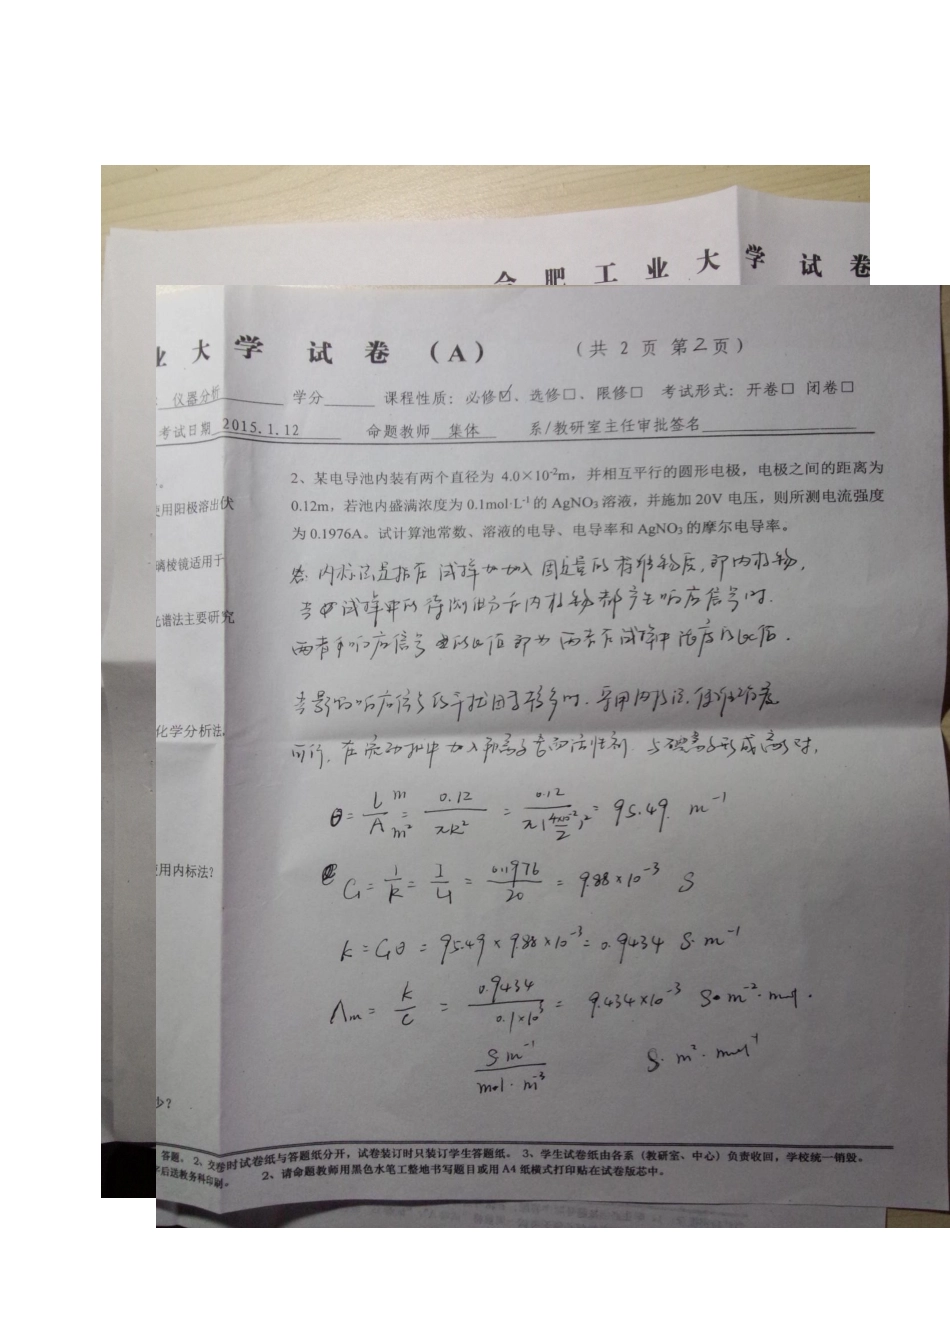 合 肥 工 业 大 学 试 卷
业 大 学 试 卷 (A) (共 2 页 第 2 页)
: 仪器分析 学分 课程性质: 必修☑、选修□、限修□ 考试形式: 开卷□ 闭卷□
考试日期 2015.1.12 命题教师 集体 系/教研室主任审批签名
2、某电导池内装有两个直径为 4.0×10⁻²m，并相互平行的圆形电极，电极之间的距离为
0.12m，若池内盛满浓度为 0.1mol·L⁻¹ 的 AgNO₃ 溶液，并施加 20V 电压，则所测电流强度
为 0.1976A。试计算池常数、溶液的电导、电导率和 AgNO₃ 的摩尔电导率。
使用阳极溶出伏
璃棱镜适用于
光谱法主要研究
化学分析法,
使用内标法?
少?
答: 内标法是指在试样中加入固定量的 物质, 即内标物,
当 试样中的待测组分和内标物都产生响应信号时.
两者 响应信号 的比值即为两者在试样中浓度的比值.
当影响响应信号的干扰因素 多时. 采用内标法.
可行. 在流动相中加入 离子 表面活性剂 与 离子形成离子对,
θ = L/A m/m² = 0.12/πR² = 0.12/π(4×10⁻²/2)² = 95.49 m⁻¹
G = 1/R = I/U = 0.1976/20 = 9.88×10⁻³ S
k = Gθ = 95.49 × 9.88×10⁻³ = 0.9434 S·m⁻¹
Λm = k/c = 0.9434/0.1×10³ = 9.434×10⁻³ S·m⁻²·mol.
S·m⁻¹/mol·m⁻³ S·m²·mol⁻¹
答题。 2、交卷时试卷纸与答题纸分开，试卷装订时只装订学生答题纸。 3、学生试卷纸由各系（教研室、中心）负责收回，学校统一销毁。
后送教务科印刷。 2、请命题教师用黑色水笔工整地书写题目或用 A4 纸横式打印贴在试卷版芯中。